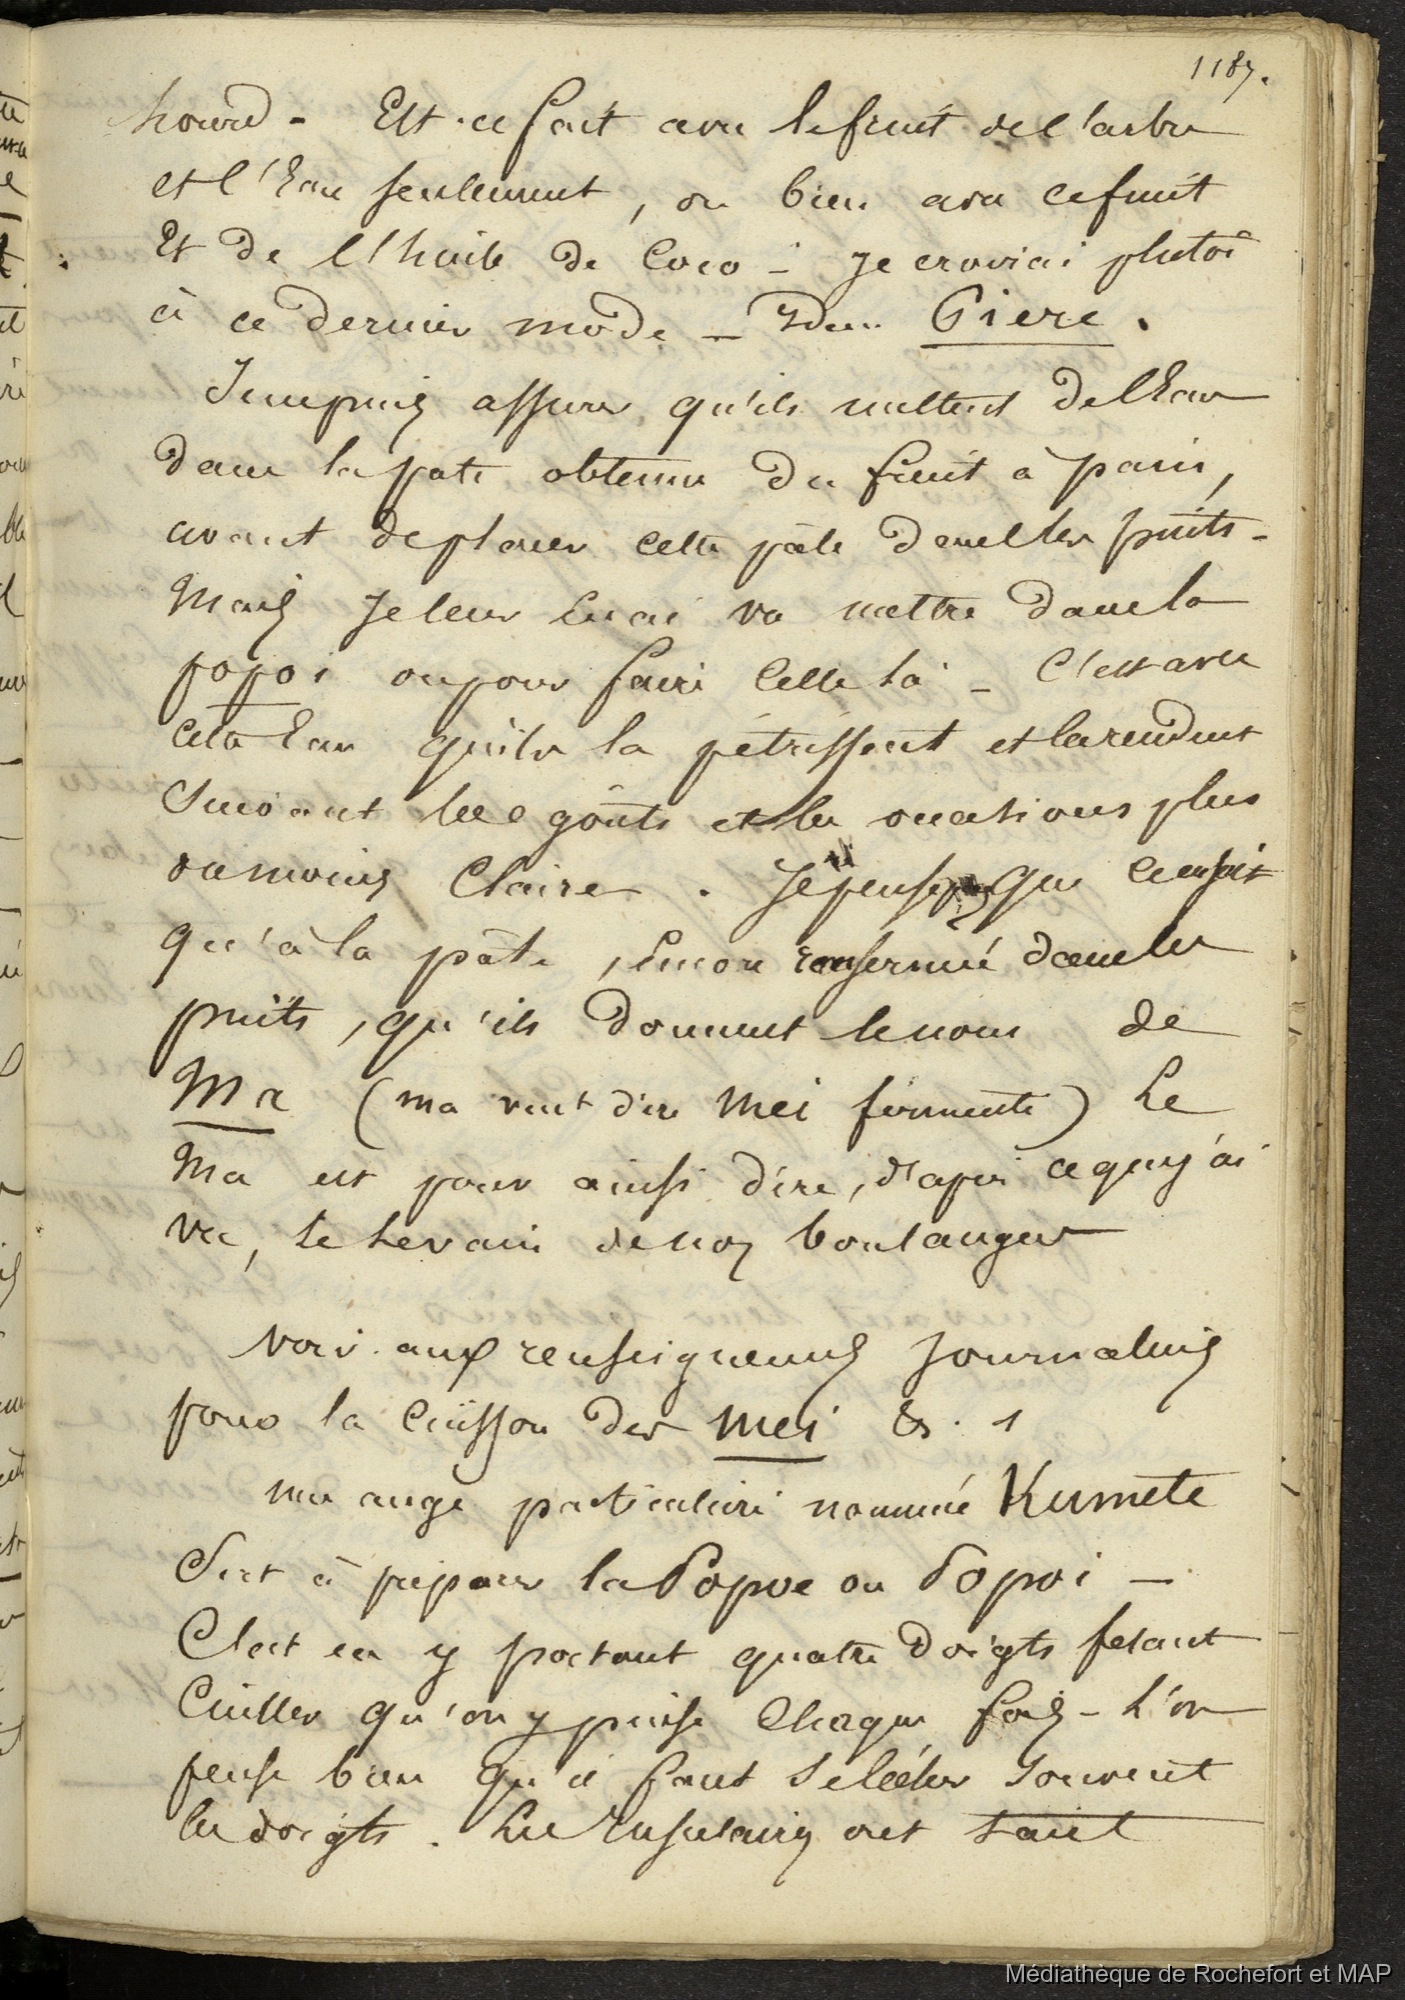 1187.
hourd - Est-ce fait avec le fruit de l'arbre
et l'Eau seulement, ou bien avec ce fruit
Et de l'huile de Coco - Je croirai plutôt
à ce dernier mode - Idem Piere.
Je me puis assurer qu'ils mettent de l'Eau
dans la pate obtenue du fruit à pain,
avant de placer cette pâte dans les puits -
Mais Je leur en ai vu mettre dans la
popoi ou pour faire celle là - C'est avec
cette Eau qu'ils la pétrissent et la rendent
Suivant les goûts et les occasions plus
ou moins Claire. Je pense que ce n'est
qu'à la pâte, encore renfermée dans les
puits, qu'ils donnent le nom de
Ma (ma veut dire Mei fermenté) Le
Ma est pour ainsi dire, d'après ce que j'ai
vu, le Levain de nos boulangers
Voir aux renseignemens Journaliers
pour la Cuisson des Mei &. 1
une auge particulière nommée Kumete
Sert à préparer la Popoe ou Popoi -
C'est en y portant quatre doigts fesant
Cuiller qu'on y puise Chaque fois - L'on
pense bien qu'il faut se lécher souvent
les doigts. Les Insulaires ont tant
Médiathèque de Rochefort et MAP